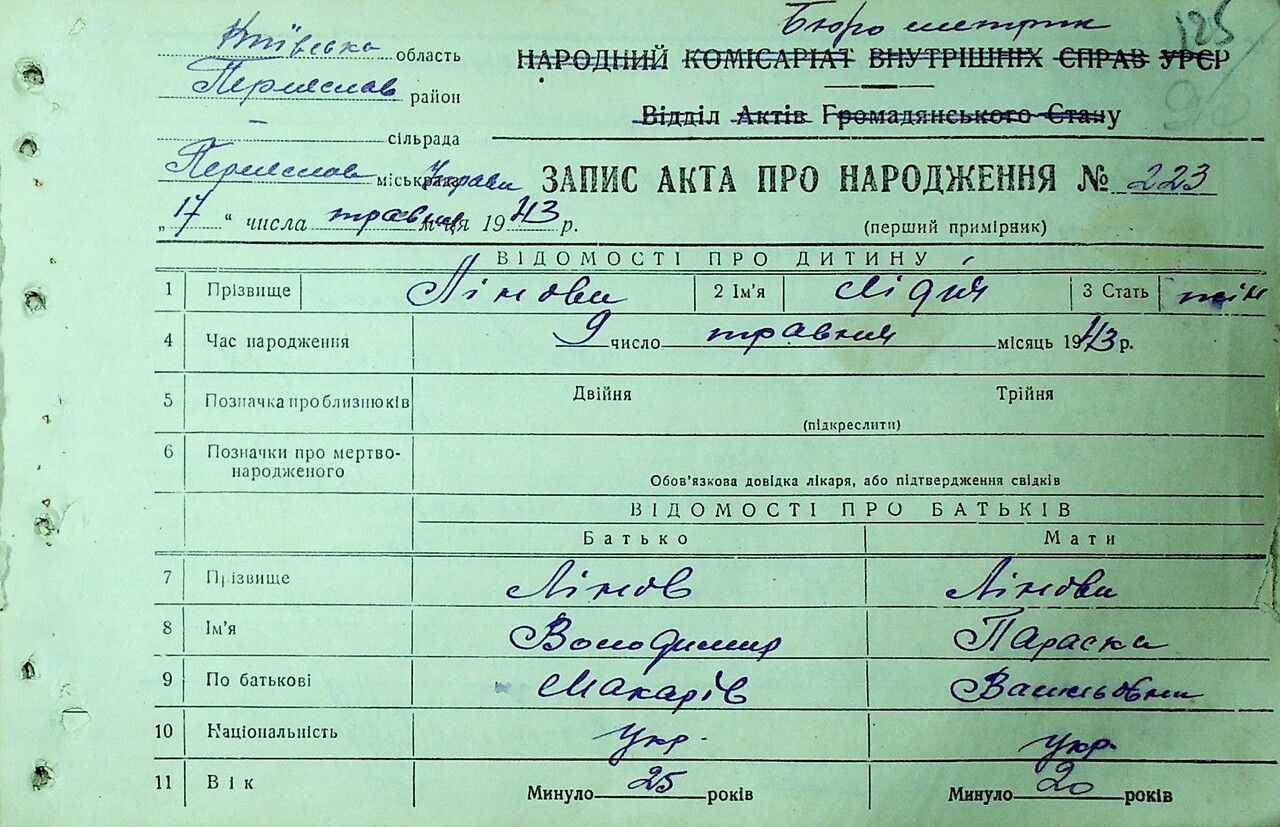 Київська область
Переяслав район
— сільрада
Переяслав міськрада Управи
„17“ числа травня м-ця 1943 р.
Бюро метрик
125
НАРОДНИЙ КОМІСАРІАТ ВНУТРІШНІХ СПРАВ УРСР
Відділ Актів Громадянського Стану
ЗАПИС АКТА ПРО НАРОДЖЕННЯ № 223
(перший примірник)
ВІДОМОСТІ ПРО ДИТИНУ
1 Прізвище Лінова 2 Ім'я Лідія 3 Стать жін
4 Час народження 9 число травня місяць 1943 р.
5 Позначка про близнюків Двійня Трійня
(підкреслити)
6 Позначки про мертво-
народженого
Обов'язкова довідка лікаря, або підтвердження свідків
ВІДОМОСТІ ПРО БАТЬКІВ
Батько Мати
7 Прізвище Лінов Лінова
8 Ім'я Володимир Параска
9 По батькові Макарів Васильовна
10 Національність укр. укр.
11 Вік Минуло 25 років Минуло 20 років